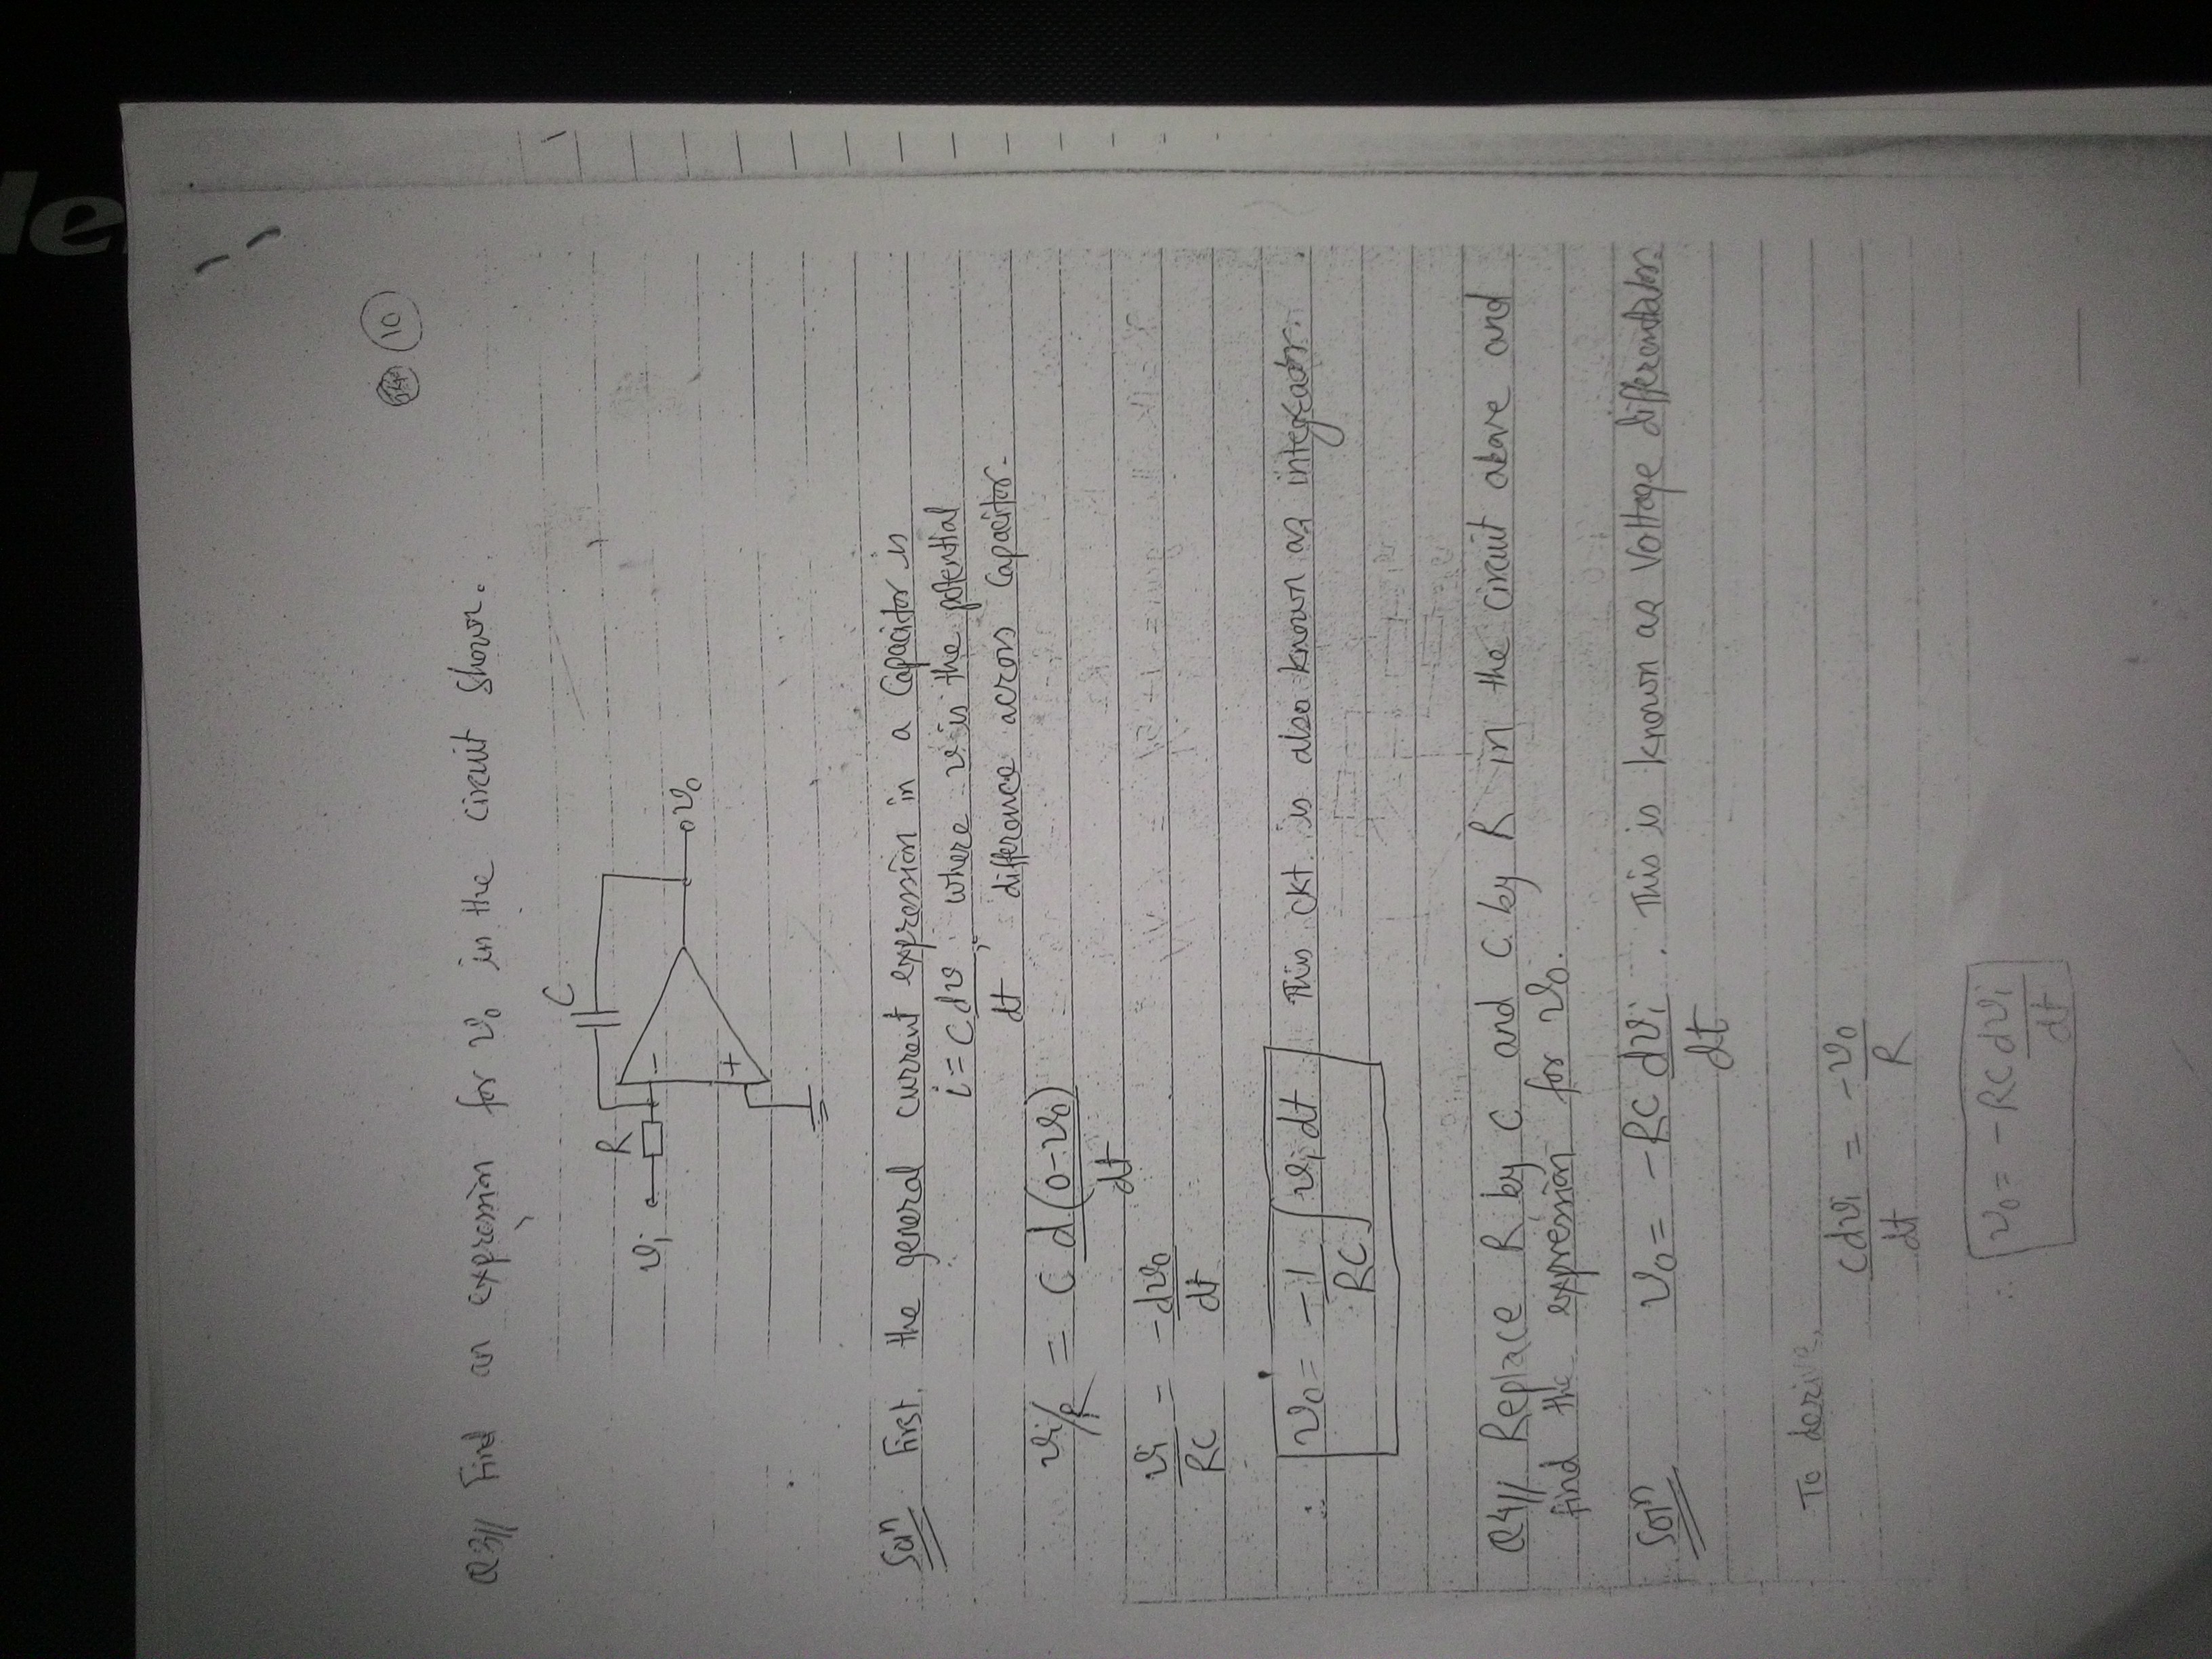 le
10
Q3// Find an expression for v₀ in the circuit shown.
C
R
vᵢ
−
v₀
+
Solⁿ First, the general current expression in a Capacitor is
i = C dv/dt, where v is the potential
difference across Capacitor.
vᵢ/R = C d(0-v₀)/dt
vᵢ/RC = -dv₀/dt
∴ v₀ = -1/RC ∫vᵢ dt This ckt. is also known as integrator.
Q4// Replace R by C and C by R in the circuit above and
find the expression for v₀.
Solⁿ v₀ = -RC dvᵢ/dt. This is known as Voltage differentiator.
To derive,
C dvᵢ/dt = -v₀/R
∴ v₀ = -RC dvᵢ/dt